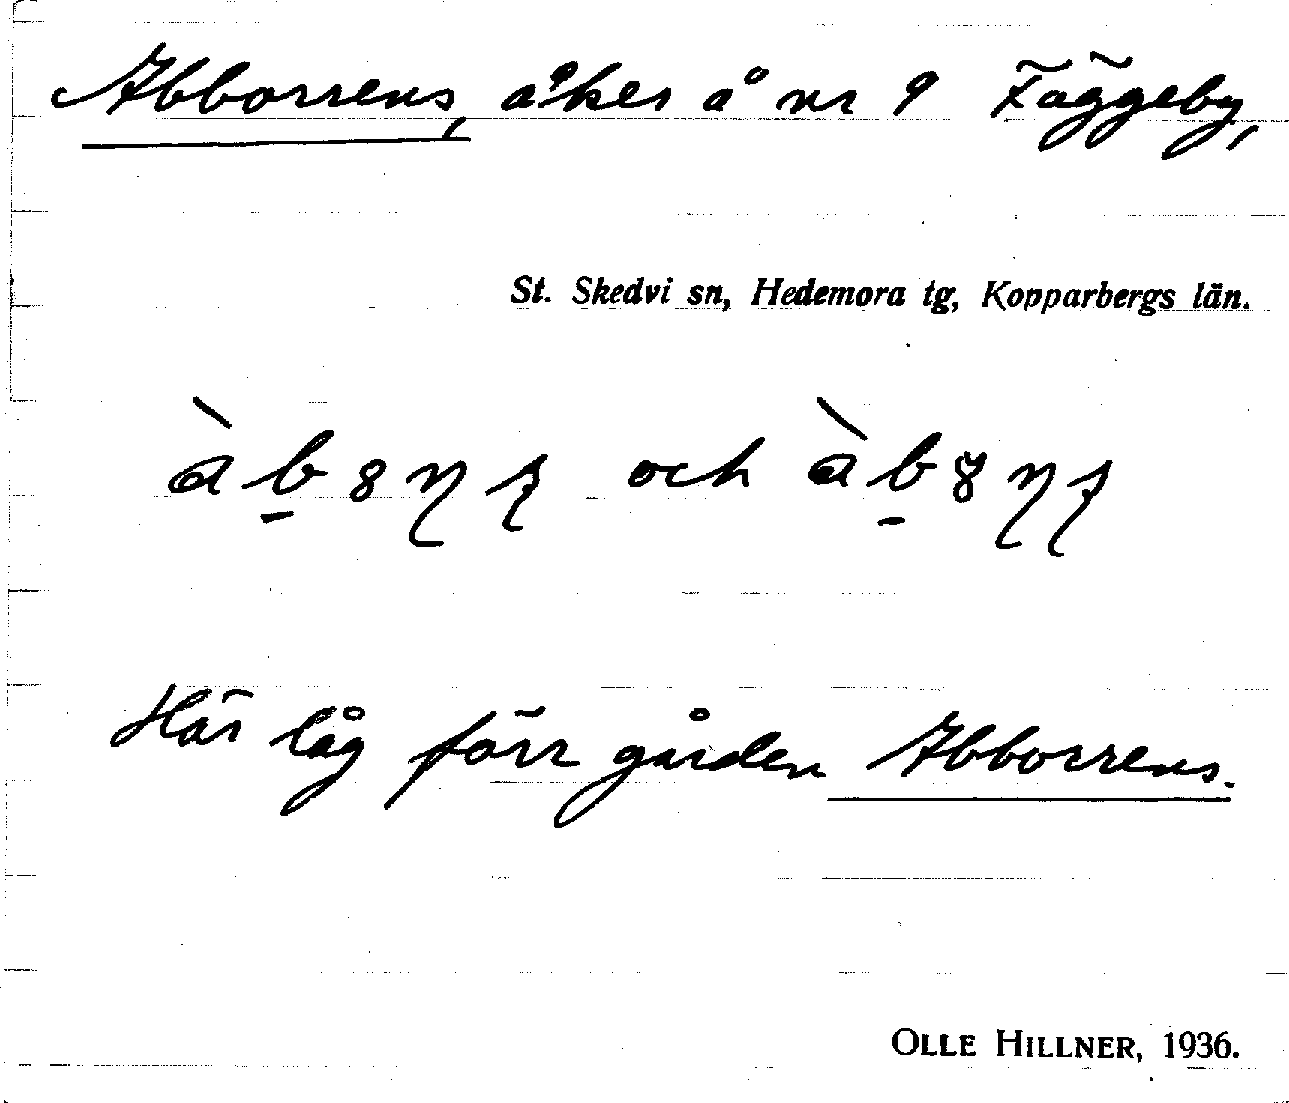 Abborrens, åker å nr 9 Fäggeby,
St. Skedvi sn, Hedemora tg, Kopparbergs län.
och
Här låg förr gården Abborrens.
OLLE HILLNER, 1936.